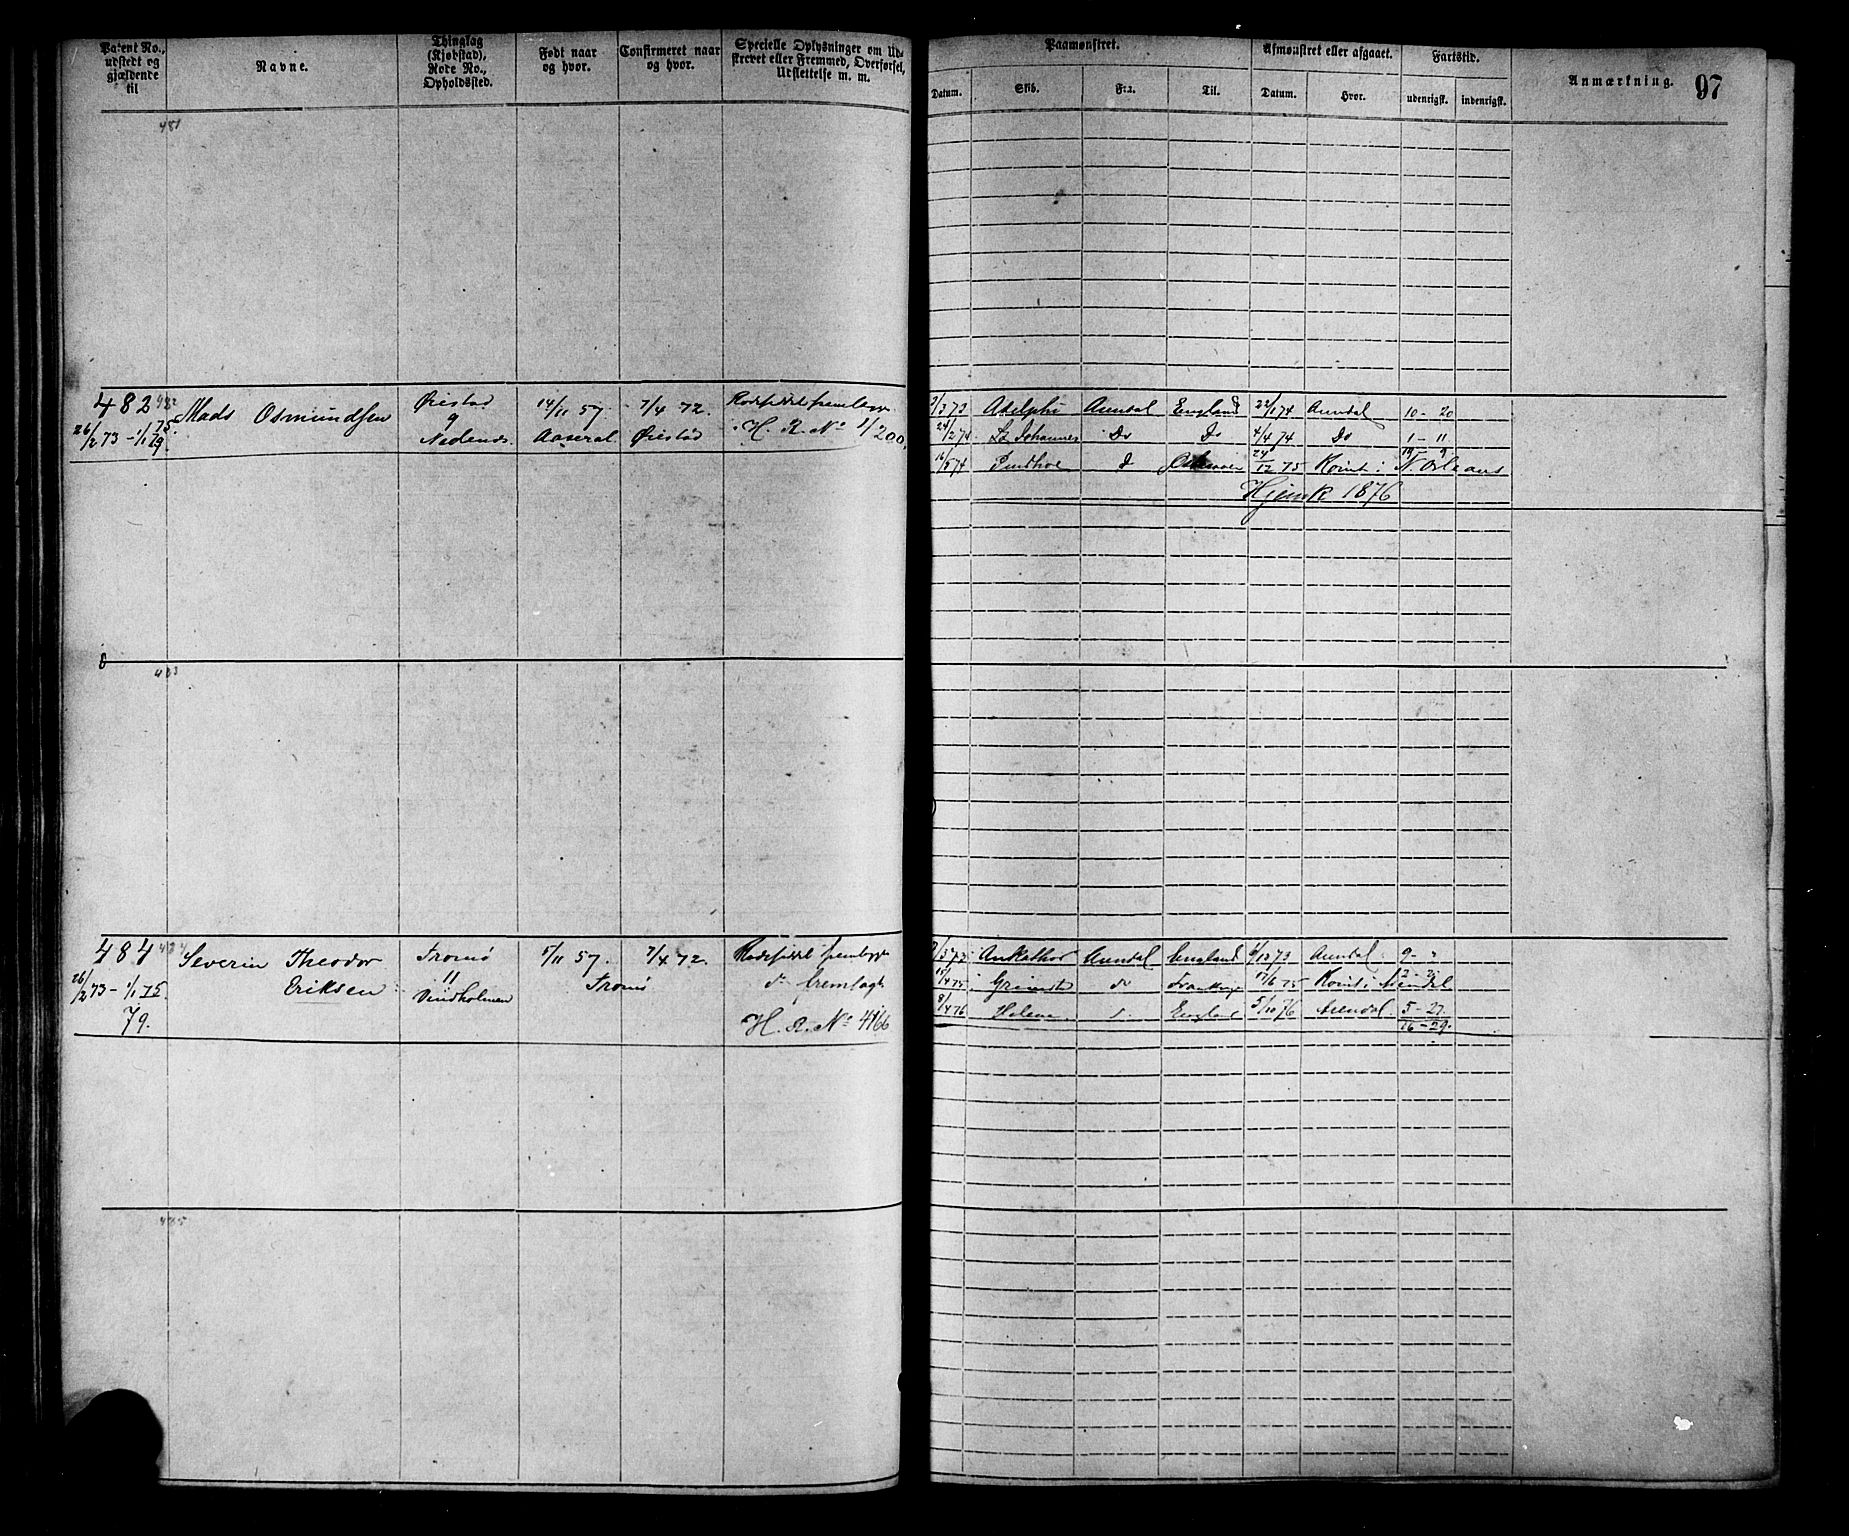 Patent No., udstedt og gjældende til
Navne.
Thinglag (Kjøbstad), Rode No., Opholdssted.
Født naar og hvor.
Confirmeret naar og hvor.
Specielle Oplysninger om Udskrevet eller Fremmed, Overførsel, Udslettelse m. m.
Paamønstret.
Afmønstret eller afgaaet.
Fartstid.
Anmærkning.
97
Datum.
Skib.
Fra.
Til.
Datum.
Hvor.
udenrigsk.
indenrigsk.
481
482 482
26/2 73 - 1/1 75.
79.
Mads Osmundsen
Øiestad
9
Nedenes.
14/11 57.
Aaseral
7/4 72.
Øiestad
H. R. No 1/200
3/3 73 Adelphi Arendal England 22/1 74 Arendal 10 - 20
24/2 74 St Johannes Do Do 4/4 74 Do 1 - 11
16/5 74 24/12 75 Romt i N Orleans
19 - 9
Hjemk 1876
483
484 484
26/2 73 - 1/1 75
79.
Severin Theodor
Eriksen
Tromø
11
Vindholmen
5/11 57.
Tromø
7/4 72.
do fremlagt
H. R. No 4166
Arendal England 73 Arendal 9 -
15/4 75 Grimstad do Frankrige 75 Romt i
8/4 76 Helene do England 5/10 76 Arendal 5 - 27
16 - 29.
485